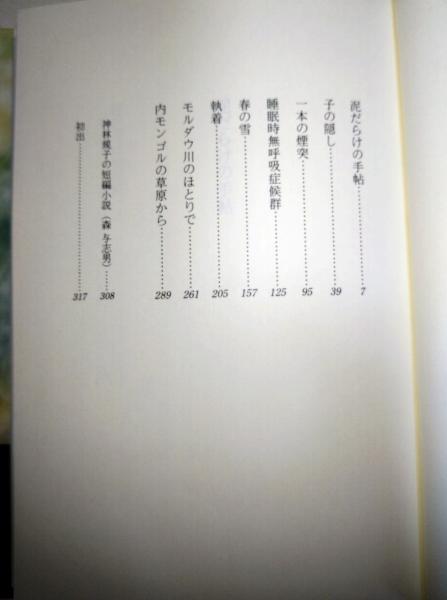 泥だらけの手帖……………………7
子の隠し……………………39
一本の煙突……………………95
睡眠時無呼吸症候群……………………125
春の雪……………………157
執着……………………205
モルダウ川のほとりで……………………261
内モンゴルの草原から……………………289
神林規子の短編小説（森 与志男）……308
初出……………………317